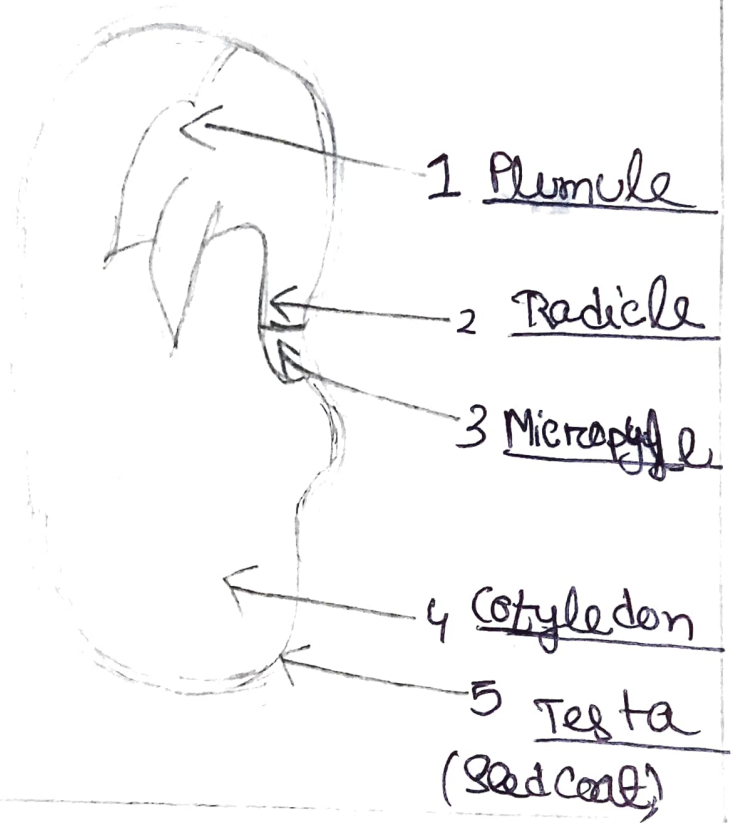 1 Plumule
2 Radicle
3 Micropyle
4 Cotyledon
5 Testa
(Seed Coat)